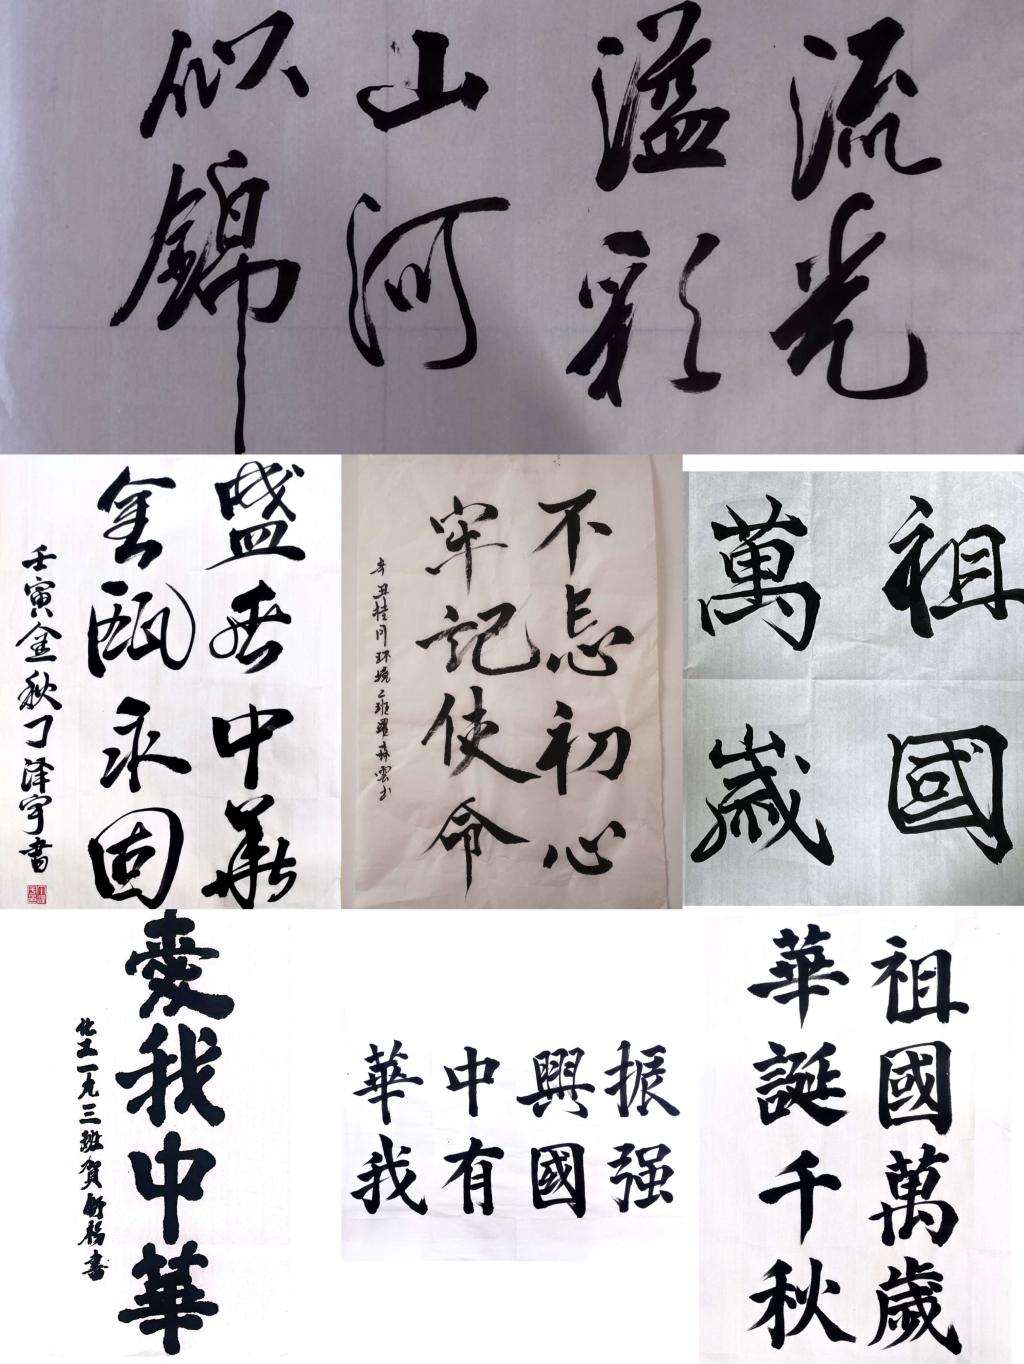 流光
溢彩
山河
似錦
盛世中華
金甌永固
壬寅金秋丁泽宇書
不忘初心
牢记使命
辛丑桂月环境二班羅森雲书
祖國
萬歲
愛我中華
化工一九三班賀書
振興中華
强國有我
祖國萬歲
華誕千秋